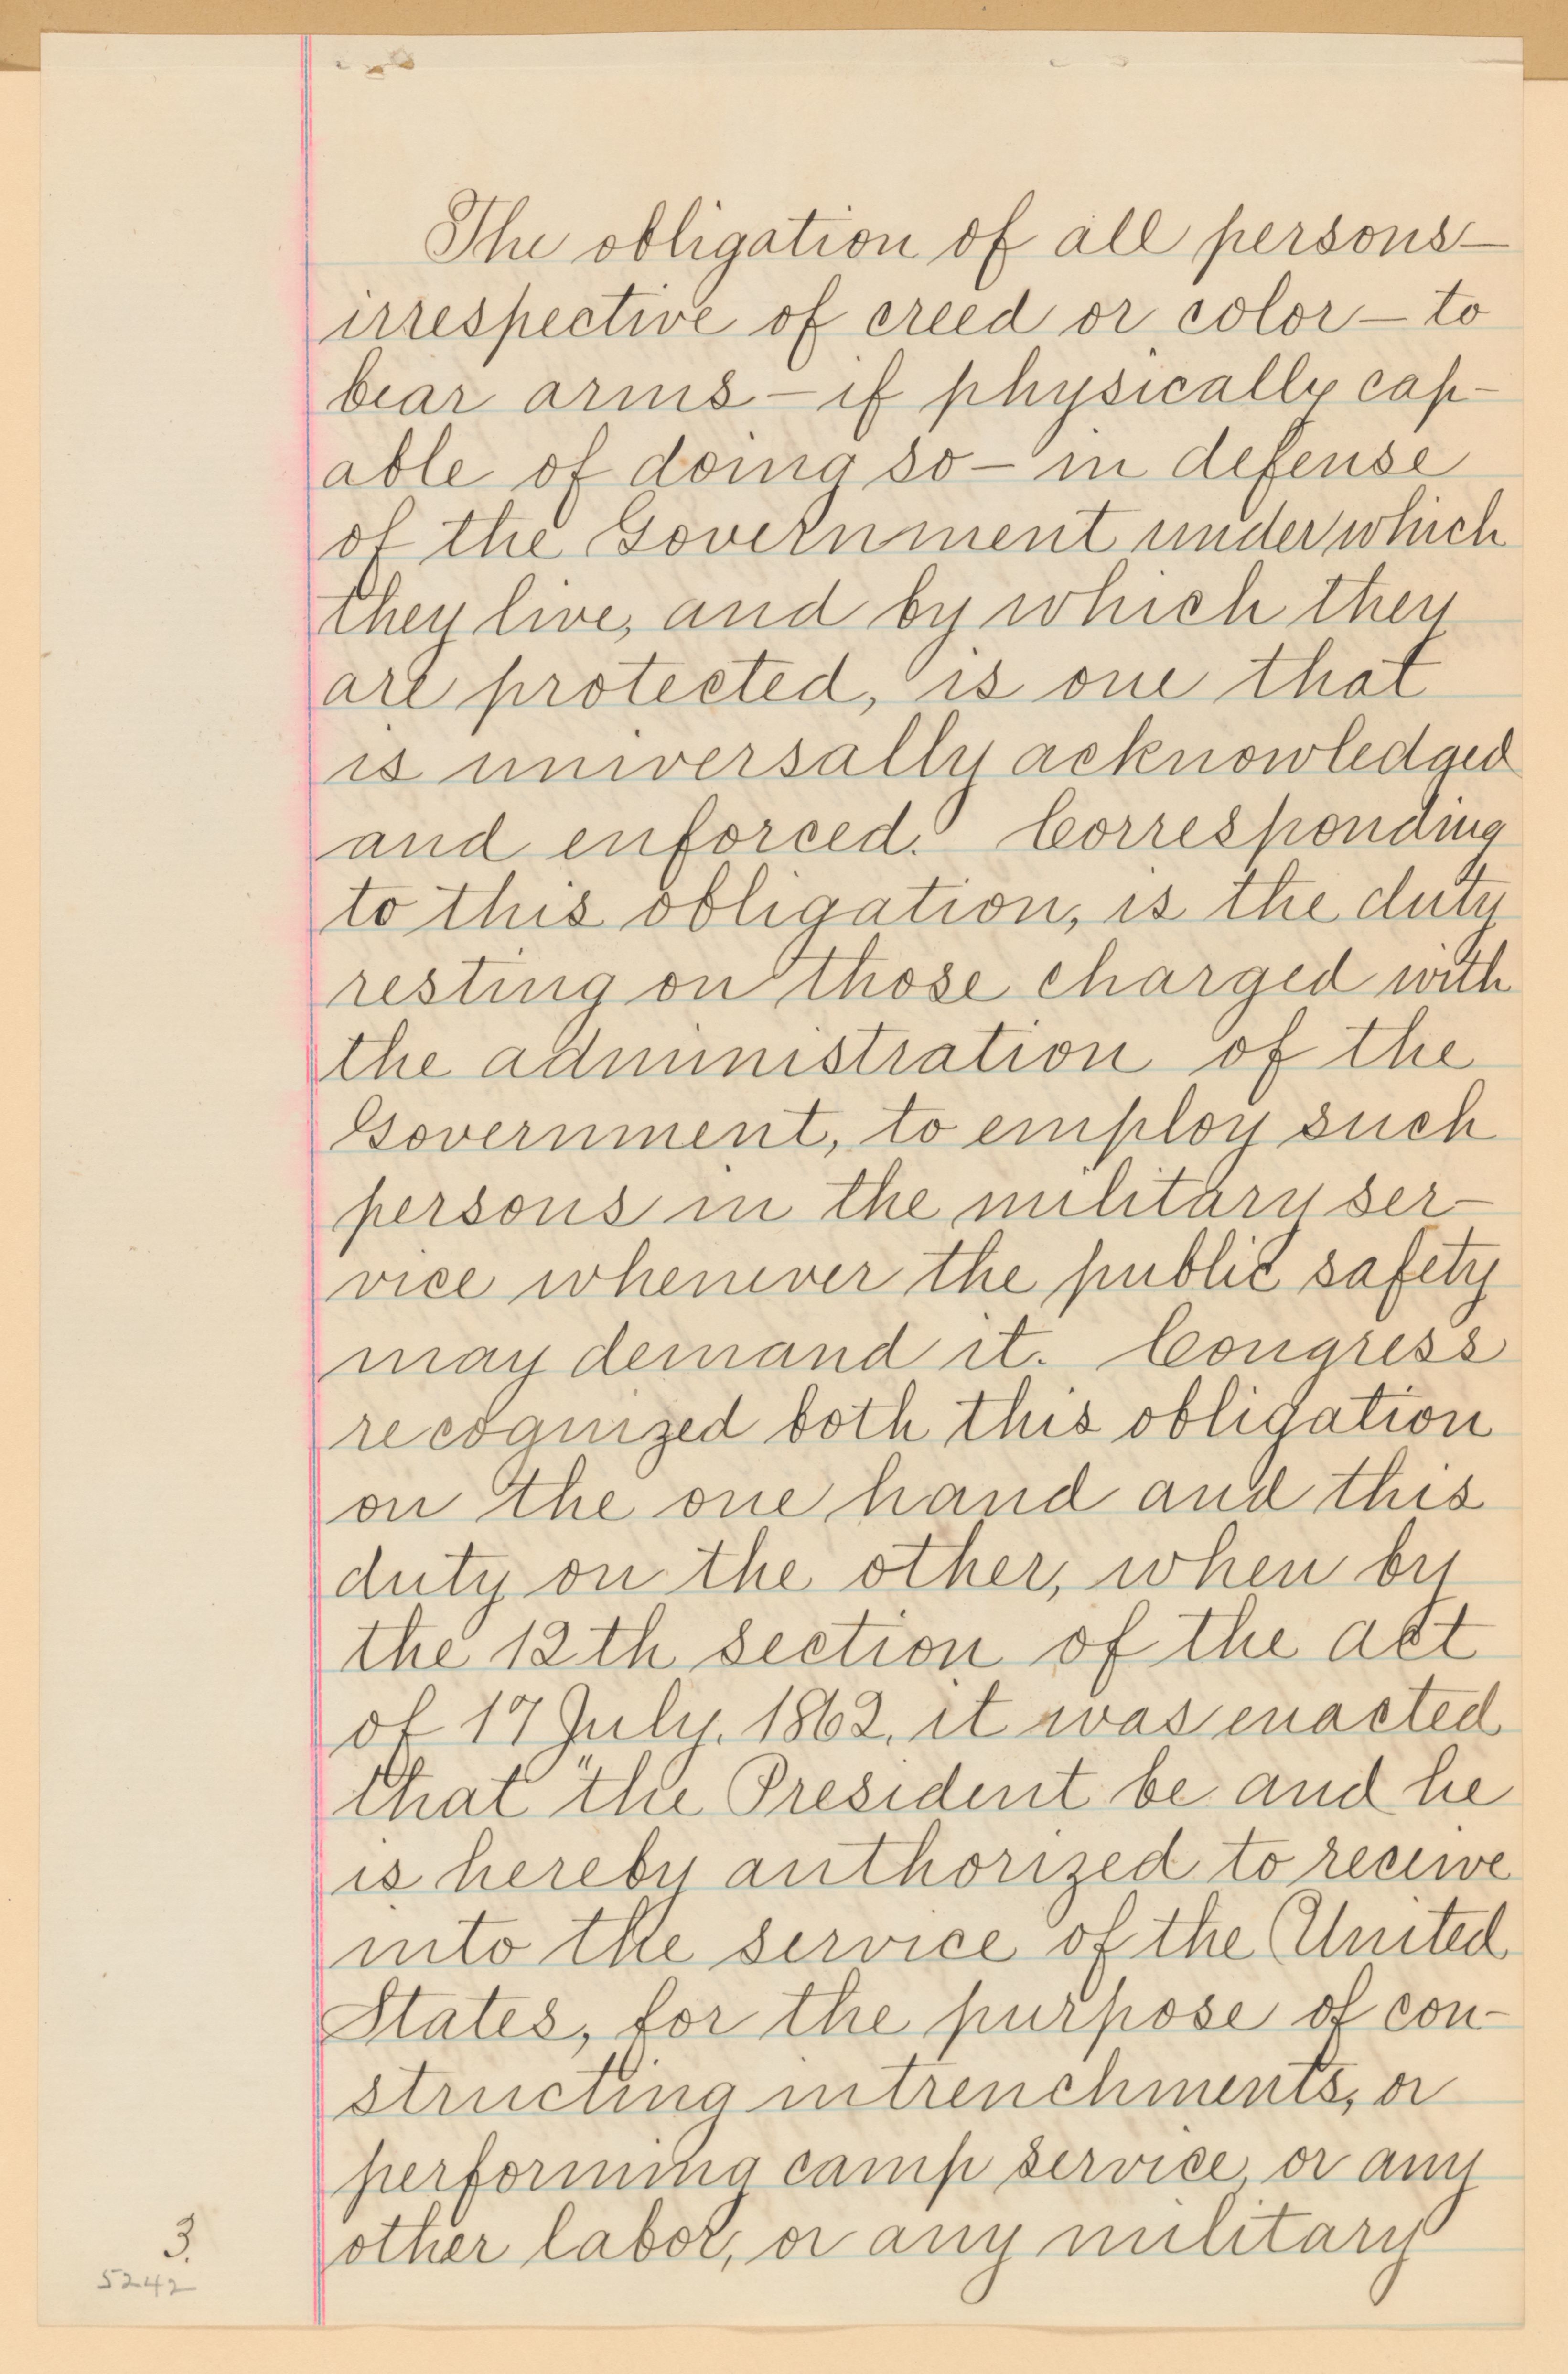 The obligation of all persons—
irrespective of creed or color—to
bear arms—if physically cap-
able of doing so—in defense
of the Government under which
they live, and by which they
are protected, is one that
is universally acknowledged
and enforced. Corresponding
to this obligation, is the duty
resting on those charged with
the administration of the
Government, to employ such
persons in the military ser-
vice whenever the public safety
may demand it. Congress
recognized both this obligation
on the one hand and this
duty on the other, when by
the 12th section of the act
of 17 July, 1862, it was enacted
that "the President be and he
is hereby authorized to receive
into the service of the United
States, for the purpose of con-
structing intrenchments, or
performing camp service, or any
other labor, or any military
3.
5242